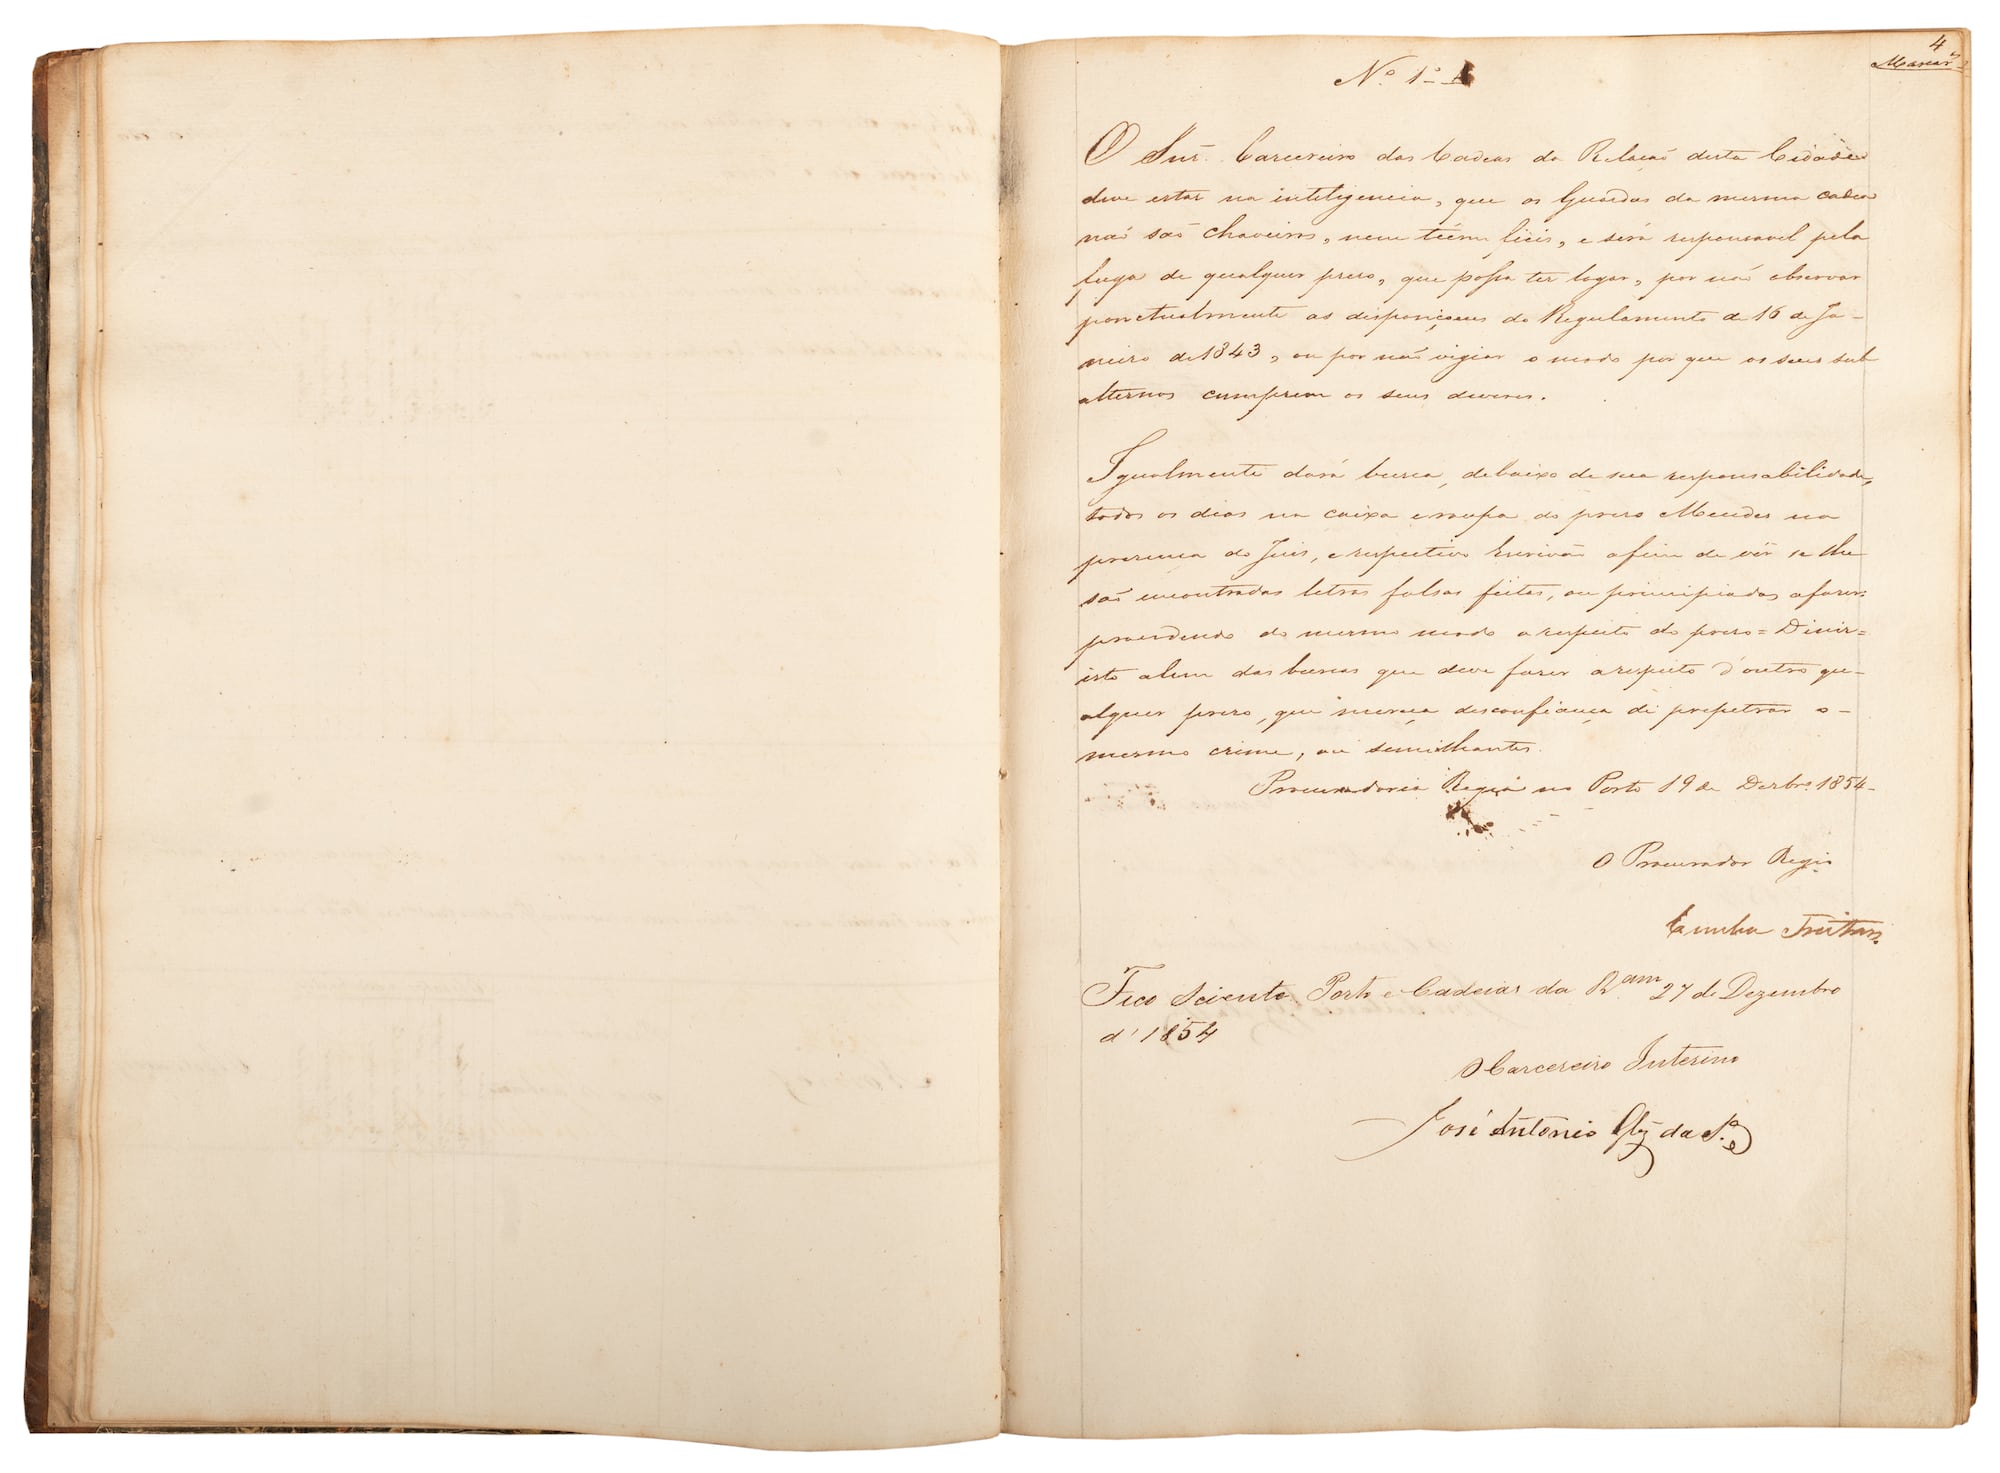 4
Nº 1º A
O Snr. Carcereiro das Cadeas da Relação desta Cidade
deve estar na inteligencia, que os Guardas da mesma cadea
não são chaveiros, nem téem fieis, e será responsavel pela
fuga de qualquer preso, que possa ter logar, por não observar
ponctualmente as disposiçoens do Regulamento de 16 de Ja-
neiro de 1843, ou por não vigiar o modo por que os seus sub
alternos cumprem os seus deveres.
Igualmente dará busca, debaixo de sua responsabilidade,
todos os dias na caixa e roupa do preso Mendes na
presença do Juis, e respectivo Escrivão afim de vêr se lhe
são encontradas letras falsas feitas, ou principiadas a faser:
procedendo do mesmo modo a respeito do preso = Diniz =
isto alem das buscas que deve faser a respeito d'outro qu-
alquer preso, que mereça desconfiança de prepetrar o-
mesmo crime, ou similhantes.
Procuradoria Regia no Porto 19 de Dezbrº 1854-
O Procurador Regio
Cunha Freitas
Fico Sciente Porto e Cadeias da Ram 27 de Dezembro
d'1854
O Carcereiro Interino
José Antonio da Sª